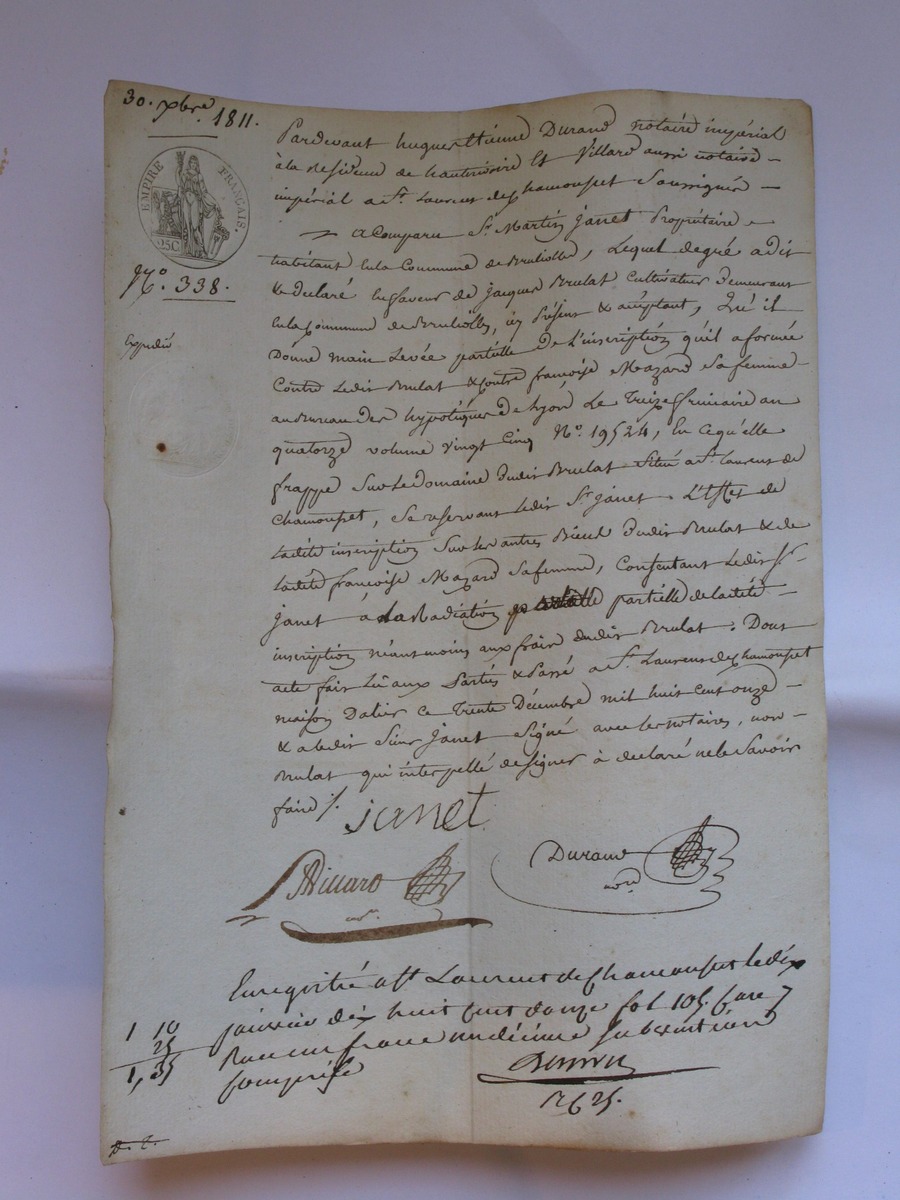 30. xbre 1811.
EMPIRE FRANÇAIS.
25C
No. 338.
Expedié
Pardevant hugues Etienne Durand notaire impérial
à la Residence de hauterivoire Et Villard aussi notaire
impérial a St. Laurent de Chamousset Soussignés
a Comparu Sr. Martin Janet Propriétaire
habitant En la Commune de Brullolle, Lequel de gré a dit
& declaré En faveur de Jacques Brulat Cultivateur Demeurant
En la Commune de Brullolles, icy Présent & acceptant, Qu'il
Donne main Levée partielle De L'inscription qu'il a formée
Contre Ledit Brulat & Contre françoise Mazard Sa femme
au Bureau des hypotèques de Lyon Le Treize frimaire an
quatorze volume vingt Cinq No. 19524, En ce qu'elle
frappe Sur Le Domaine Dudit Brulat Situé a St. Laurent de
Chamousset, Se reservant Ledit Sr. Janet L'Effet de
Ladite inscription Sur Les autres Biens Dudit Brulat & de
Ladite françoise Mazard Sa femme, Consentant Ledit Sr.
Janet à La Radiation partielle de Ladite
inscription néantmoins aux frais dudit Brulat. Dont
acte fait Lû aux Parties & Passé a St. Laurent de Chamousset
maison Datier ce Trente Décembre mil huit Cent onze
& a Ledit Sieur Janet Signé avec Les notaires, non
Brulat qui interpellé de Signer à déclaré ne le Savoir
faire /.
janet
Villard
Durand
nore
Enregistré a St Laurent de Chamousset le dix
janvier dix huit cent douze fol 105. Case 7
Reçu un franc un décime Subvention
Comprise
1 10
25
1,35
R 6 25.